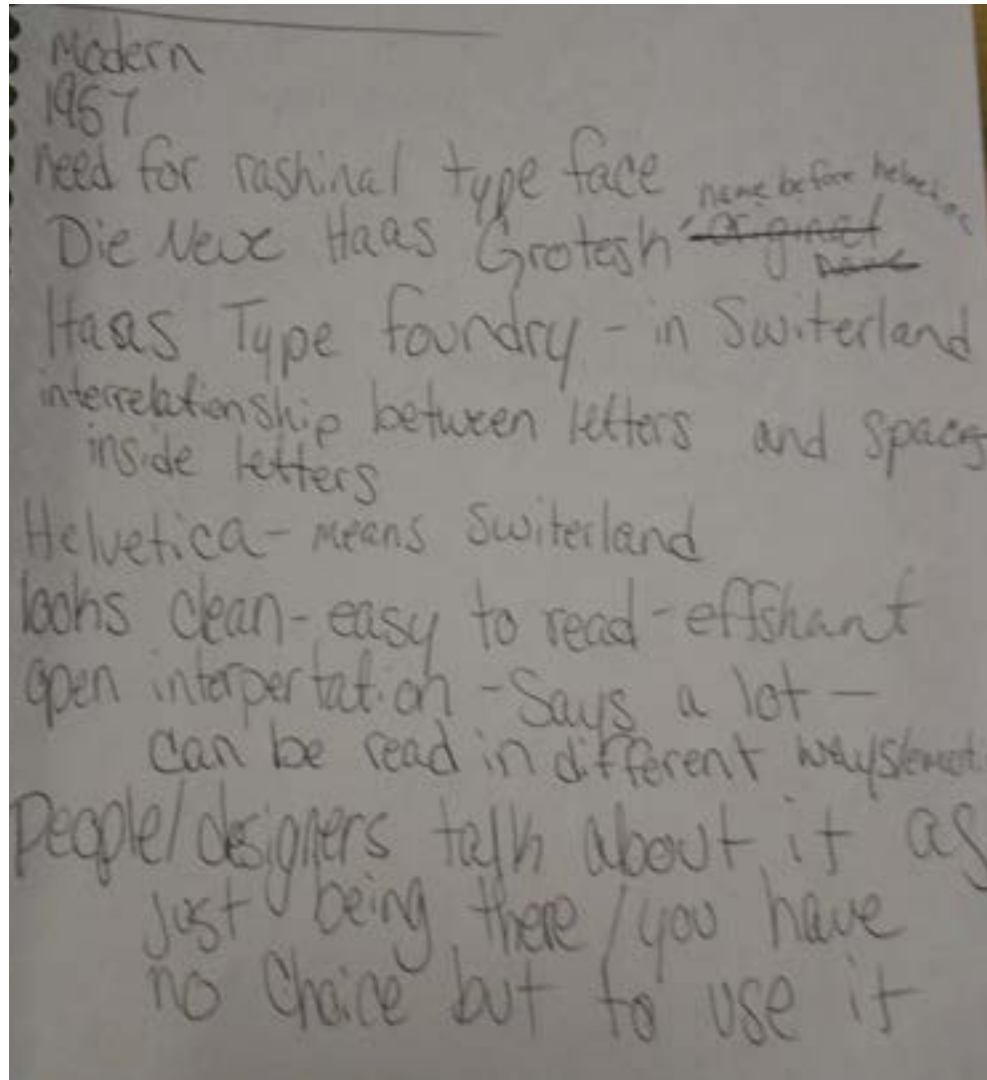 Modern
1957
need for rashinal type face
name before helvetica
Die Neue Haas Grotesh original
name
Haas Type foundry - in Switerland
interrelationship between letters and spaces
inside letters
Helvetica - means Switerland
looks clean - easy to read - effshant
open interpertation - Says a lot -
can be read in different ways/
People/designers talk about it as
just being there / you have
no choice but to use it